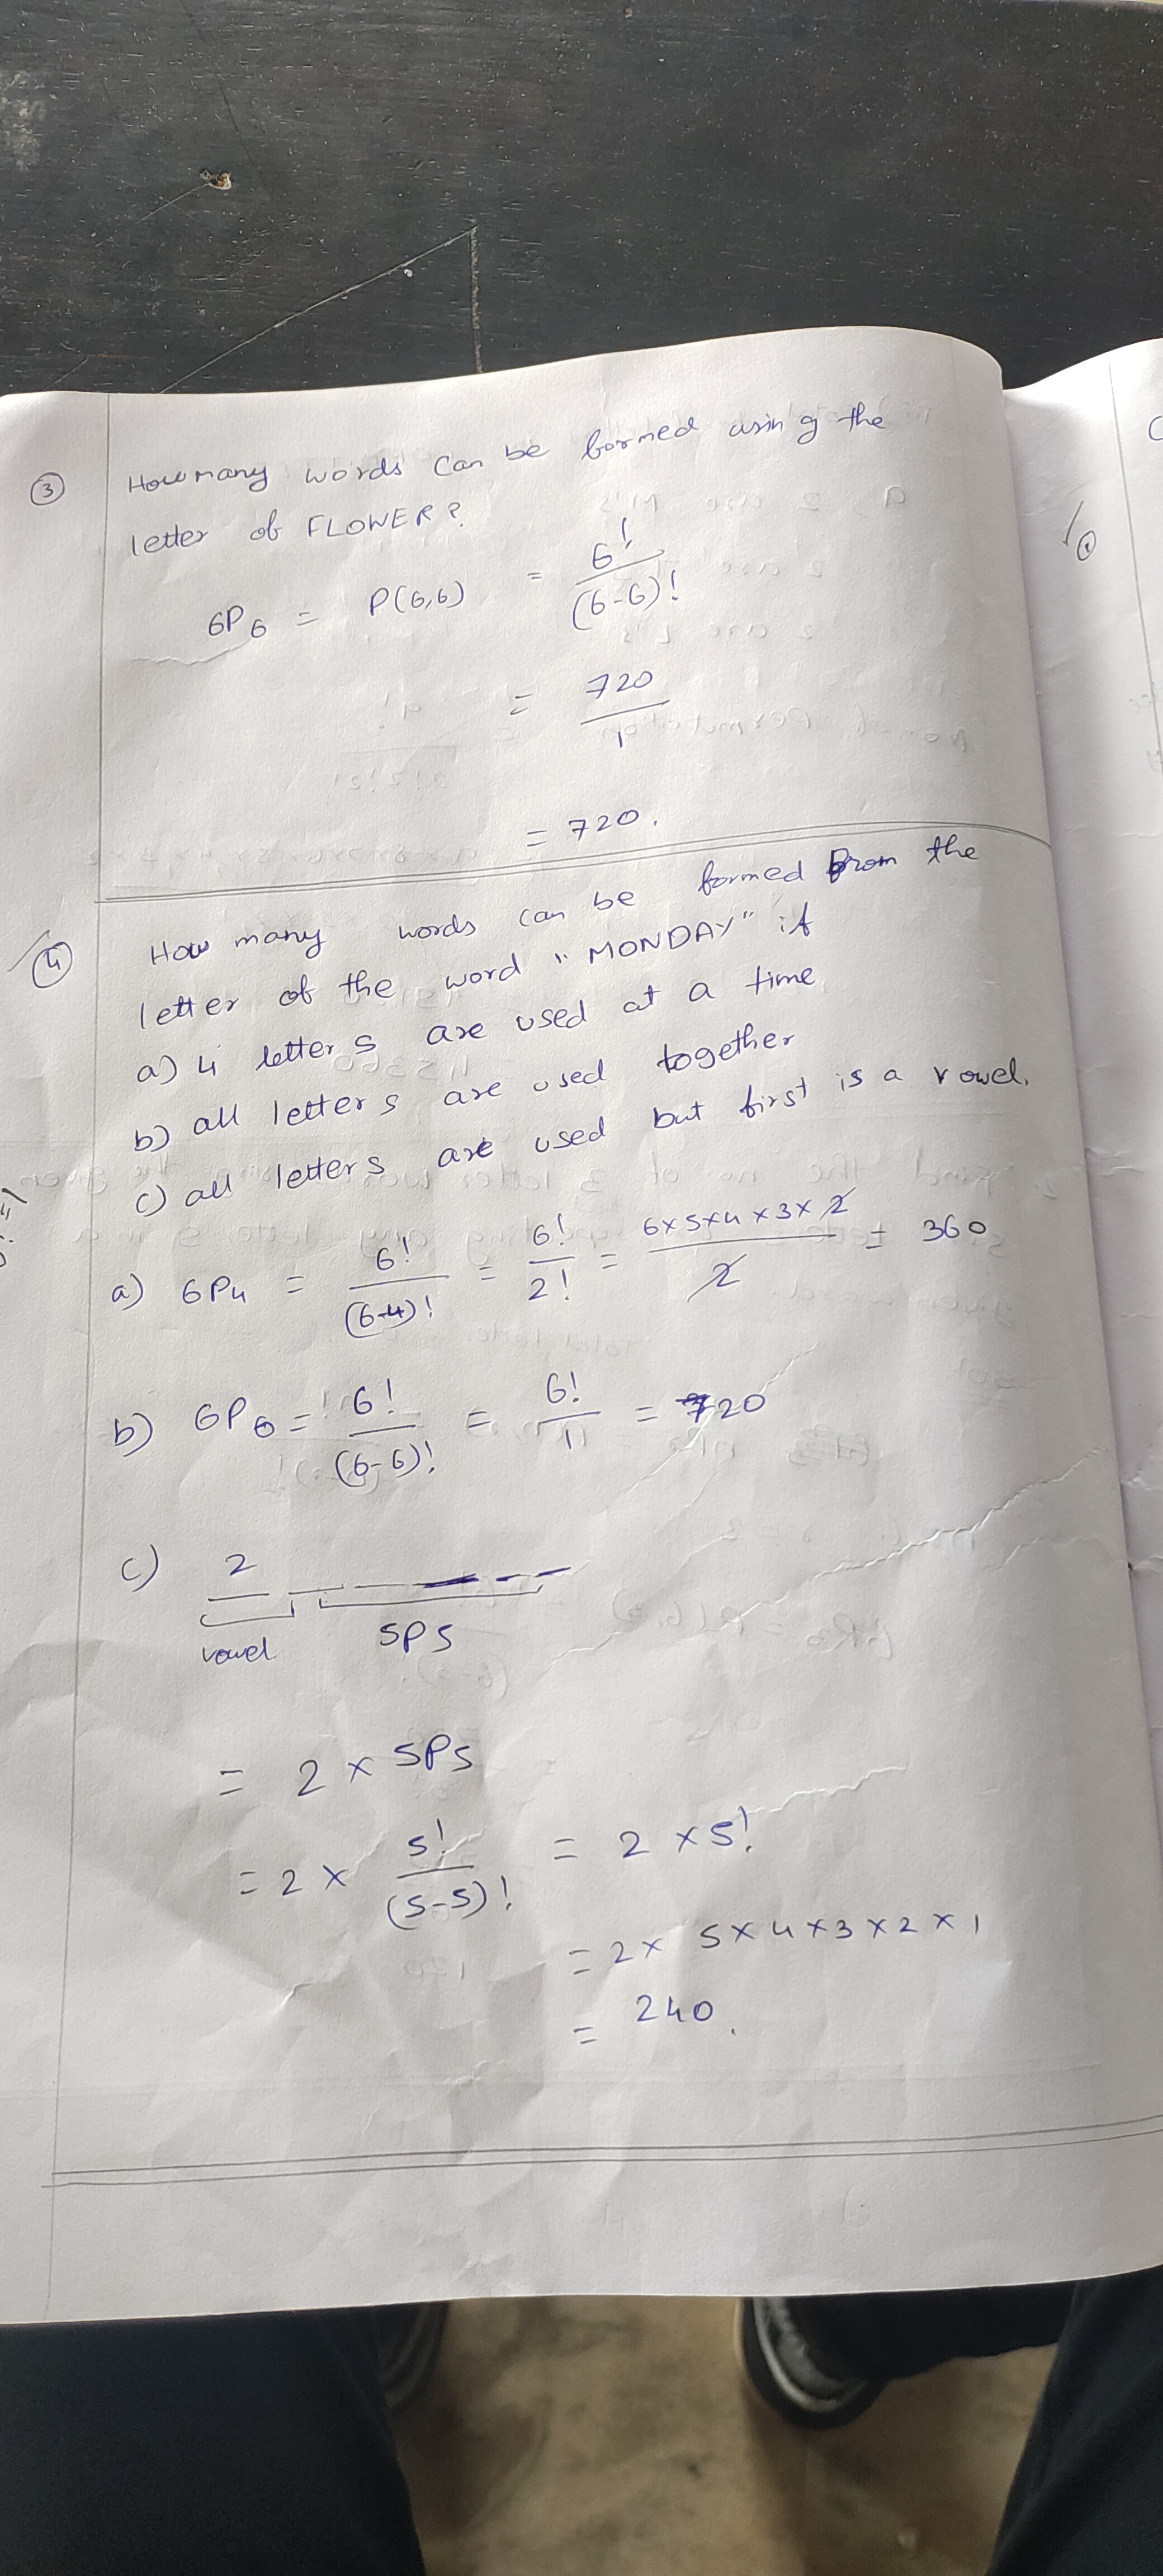 ③ How many words can be formed using the
letter of FLOWER?
6P6 = P(6,6) = 6! / (6-6)!
= 720 / 1
= 720.
④ How many words can be formed From the
letter of the word "MONDAY" if
a) 4 letters are used at a time
b) all letters are used together
c) all letters are used but first is a vowel.
a) 6P4 = 6! / (6-4)! = 6! / 2! = 6x5x4x3x2 / 2 = 360
b) 6P6 = 6! / (6-6)! = 6! / 1 = 720
c) 2
vowel 5P5
= 2 x 5P5
= 2 x 5! / (5-5)! = 2 x 5!
= 2x 5x4x3x2x1
= 240.